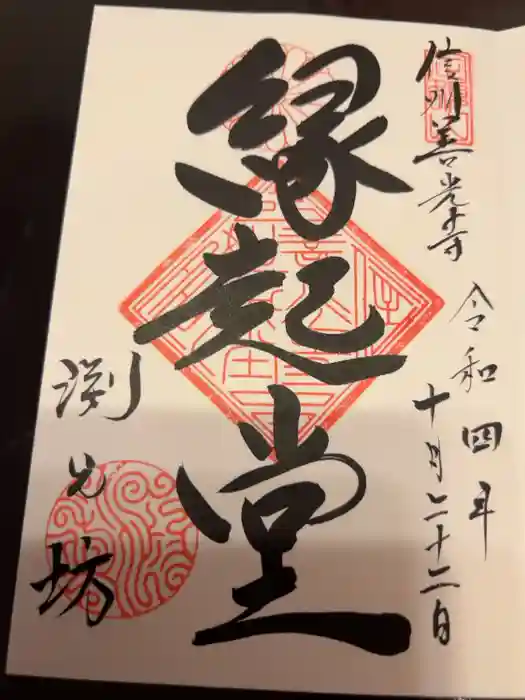 信州善光寺
令和四年
十月二十二日
縁起堂
渕之坊